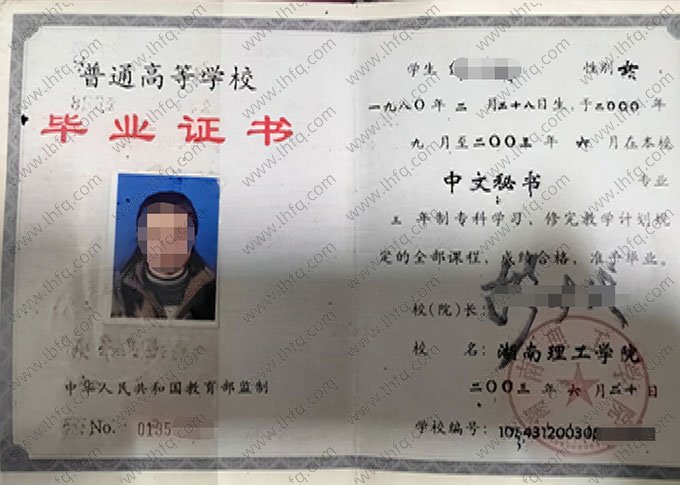 普通高等学校
毕业证书
中华人民共和国教育部监制
No. 0185
学生 性别 女
一九八〇年 二 月二十八日生,于二〇〇〇 年
九 月至二〇〇三 年 六 月在本校
中文秘书 专业
三 年制专科学习,修完教学计划规
定的全部课程,成绩合格,准予毕业。
校(院)长:
校 名:湖南理工学院
二〇〇三 年 六 月二十日
学校编号:
www.lhfq.com